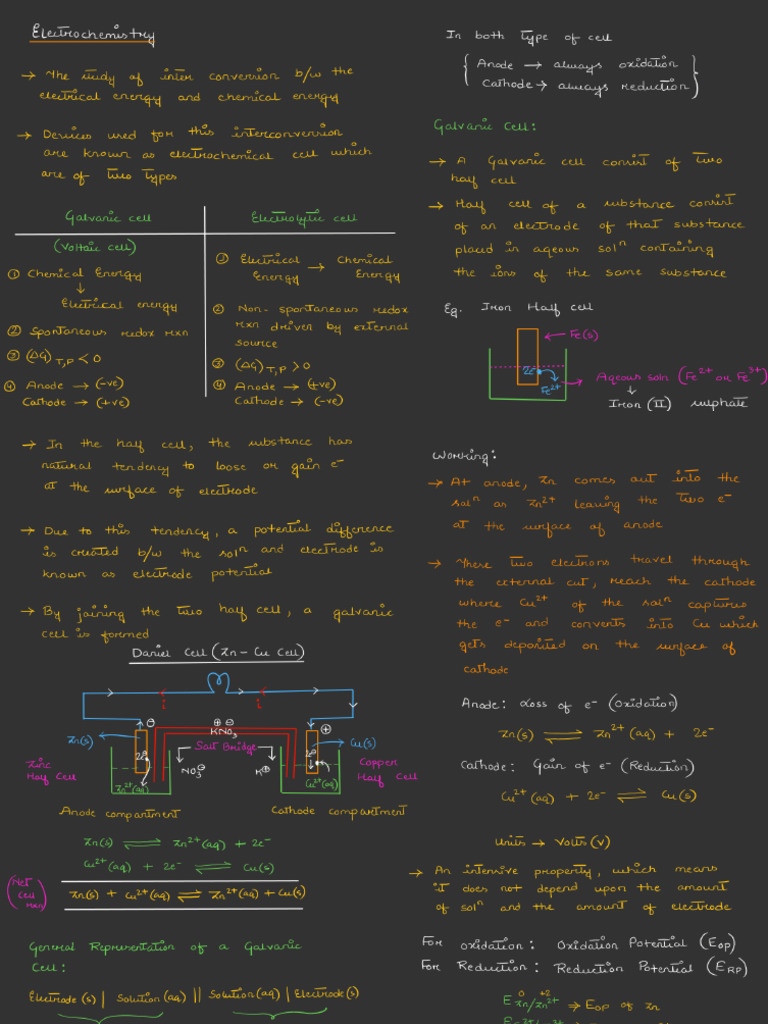 Electrochemistry
→ The study of inter conversion b/w the
electrical energy and chemical energy
→ Devices used for this interconversion
are known as electrochemical cell which
are of two types
Galvanic cell
(Voltaic cell)
① Chemical Energy
↓
Electrical energy
② Spontaneous redox rxn
③ (ΔG)T,P < 0
④ Anode → (-ve)
Cathode → (+ve)
Electrolytic cell
① Electrical Energy → Chemical Energy
② Non-spontaneous redox
rxn driven by external
source
③ (ΔG)T,P > 0
④ Anode → (+ve)
Cathode → (-ve)
→ In the half cell, the substance has
natural tendency to loose or gain e⁻
at the surface of electrode
→ Due to this tendency, a potential difference
is created b/w the solⁿ and electrode is
known as electrode potential
→ By joining the two half cell, a galvanic
cell is formed
Daniel Cell (Zn - Cu Cell)
i i
⊖ ⊕ ⊖ ⊕
KNO₃
Zn(s) Salt Bridge Cu(s)
2e⁻ 2e⁻
Zinc
Half Cell
NO₃⊖ K⊕
Copper
Half Cell
Zn²⁺(aq) Cu²⁺(aq)
Anode compartment Cathode compartment
Zn(s) ⇌ Zn²⁺(aq) + 2e⁻
Cu²⁺(aq) + 2e⁻ ⇌ Cu(s)
(Net
Cell
rxn)
Zn(s) + Cu²⁺(aq) ⇌ Zn²⁺(aq) + Cu(s)
General Representation of a Galvanic
Cell:
Electrode(s) | Solution(aq) || Solution(aq) | Electrode(s)
In both type of cell
{Anode → always oxidation
Cathode → always reduction}
Galvanic Cell:
→ A Galvanic cell consist of two
half cell
→ Half cell of a substance consist
of an electrode of that substance
placed in aqeous solⁿ containing
the ions of the same substance
Eg. Iron Half cell
Fe(s)
2e⁻
Fe²⁺
Aqeous soln (Fe²⁺ or Fe³⁺)
↓
Iron (II) sulphate
Working:
→ At anode, Zn comes out into the
solⁿ as Zn²⁺ leaving the two e⁻
at the surface of anode
→ These two electrons travel through
the external cut, reach the cathode
where Cu²⁺ of the solⁿ captures
the e⁻ and converts into Cu which
gets deposited on the surface of
cathode
Anode: Loss of e⁻ (Oxidation)
Zn(s) ⇌ Zn²⁺(aq) + 2e⁻
Cathode: Gain of e⁻ (Reduction)
Cu²⁺(aq) + 2e⁻ ⇌ Cu(s)
Units → Volts (V)
→ An intensive property, which means
it does not depend upon the amount
of solⁿ and the amount of electrode
For oxidation: Oxidation Potential (EOP)
For Reduction: Reduction Potential (ERP)
0 +2
E Zn/Zn²⁺ → EOP of Zn